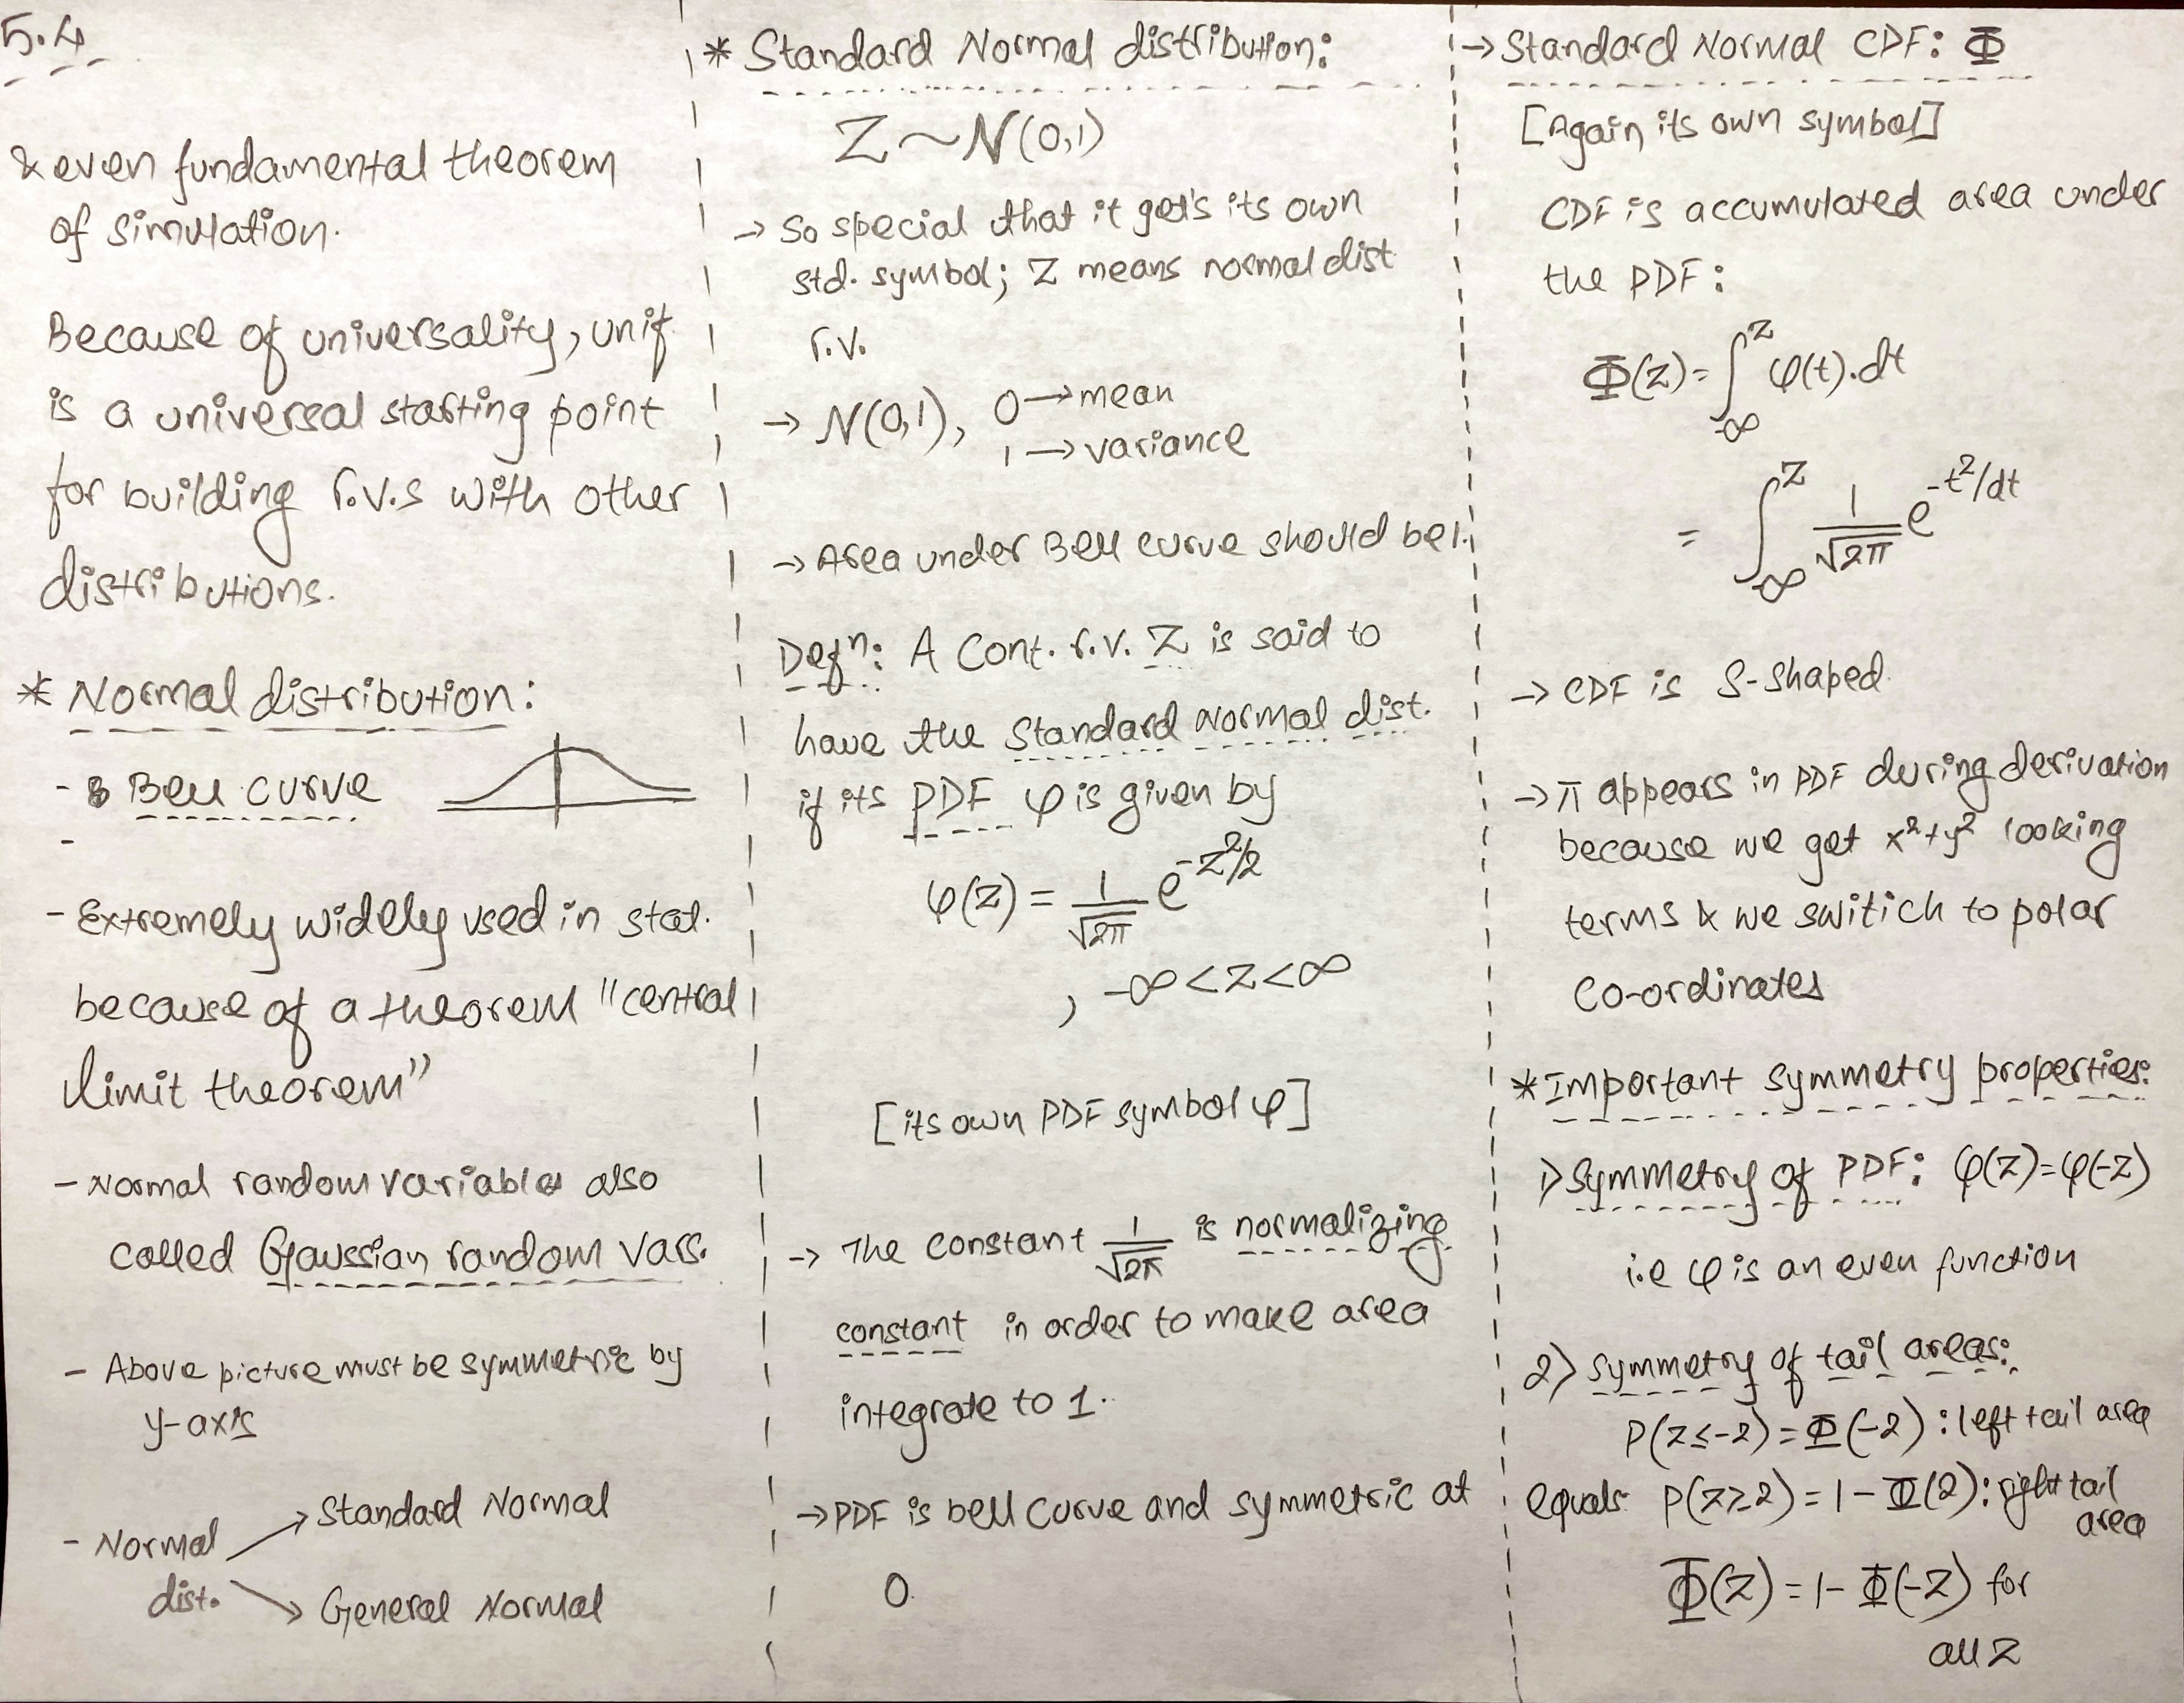 5.4
& even fundamental theorem
of simulation.
Because of universality, unif
is a universal starting point
for building r.v.s with other
distributions.
* Normal distribution:
- Bell curve
-
- Extremely widely used in stat.
because of a theorem "central
limit theorem"
- Normal random variables also
called Gaussian random vars.
- Above picture must be symmetric by
y-axis
- Normal dist.
→ Standard Normal
→ General Normal
* Standard Normal distribution:
Z ~ N(0,1)
→ So special that it get's its own
std. symbol; Z means normal dist
r.v.
→ N(0,1), 0 → mean
1 → variance
→ Area under Bell curve should be 1.
Defⁿ: A Cont. r.v. Z is said to
have the Standard Normal dist.
if its PDF φ is given by
φ(z) = 1/√2π e^-z²/2
, -∞ < z < ∞
[its own PDF symbol φ]
→ The constant 1/√2π is normalizing
constant in order to make area
integrate to 1.
→ PDF is bell curve and symmetric at
0.
→ Standard Normal CDF: Φ
[Again its own symbol]
CDF is accumulated area under
the PDF:
Φ(z) = ∫_-∞^z φ(t).dt
= ∫_-∞^z 1/√2π e^-t²/dt
→ CDF is S-shaped
→ π appears in PDF during derivation
because we get x²+y² looking
terms & we switich to polar
co-ordinates
* Important symmetry properties:
1) Symmetry of PDF: φ(z)=φ(-z)
i.e φ is an even function
2) Symmetry of tail areas:
P(z≤-2) = Φ(-2) : left tail area
equals P(z≥2) = 1 - Φ(2) : right tail
area
Φ(z) = 1 - Φ(-z) for
all z